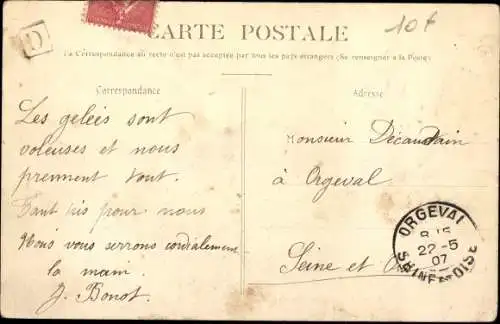 CARTE POSTALE
10f
D
La Correspondance au recto n'est pas acceptée par tous les pays étrangers (Se renseigner à la Poste)
Correspondance
Les gelées sont
voleuses et nous
prennent tout.
Tant pis pour nous
Nous vous serrons cordialement
la main.
J. Bonot.
Adresse
Monsieur Décaudain
à Orgeval
Seine et
ORGEVAL
22-5
07
SEINE-ET-OISE